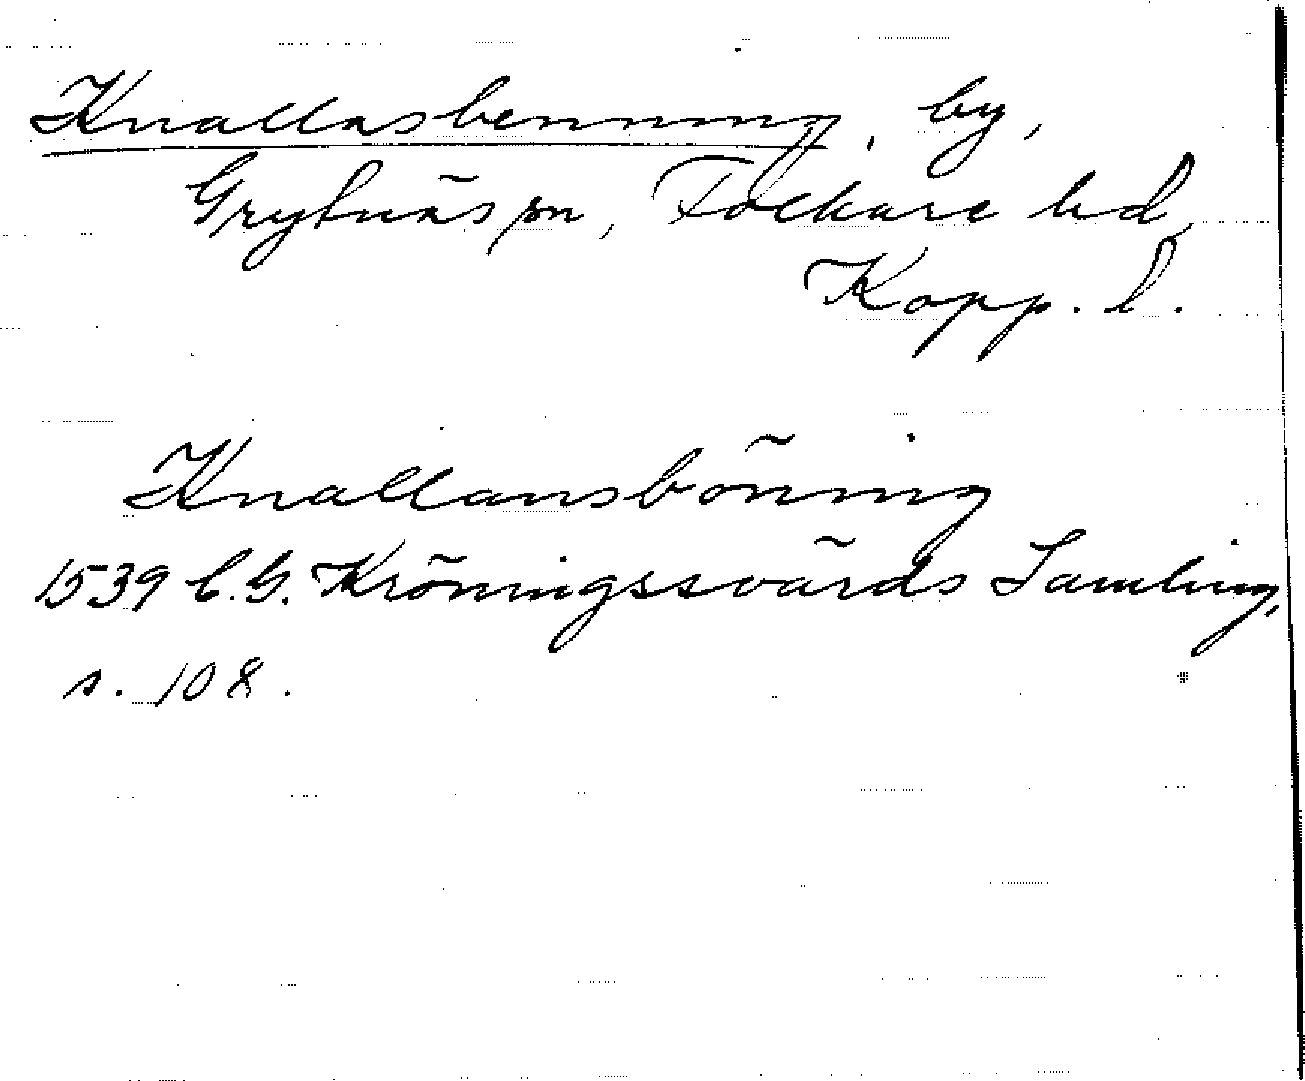 Knallasbenning, by,
Grytnäs sn, Folkare hd,
Kopp. l.
Knallansböning
1539 C.G. Kröningssvärds Samling,
s. 108.